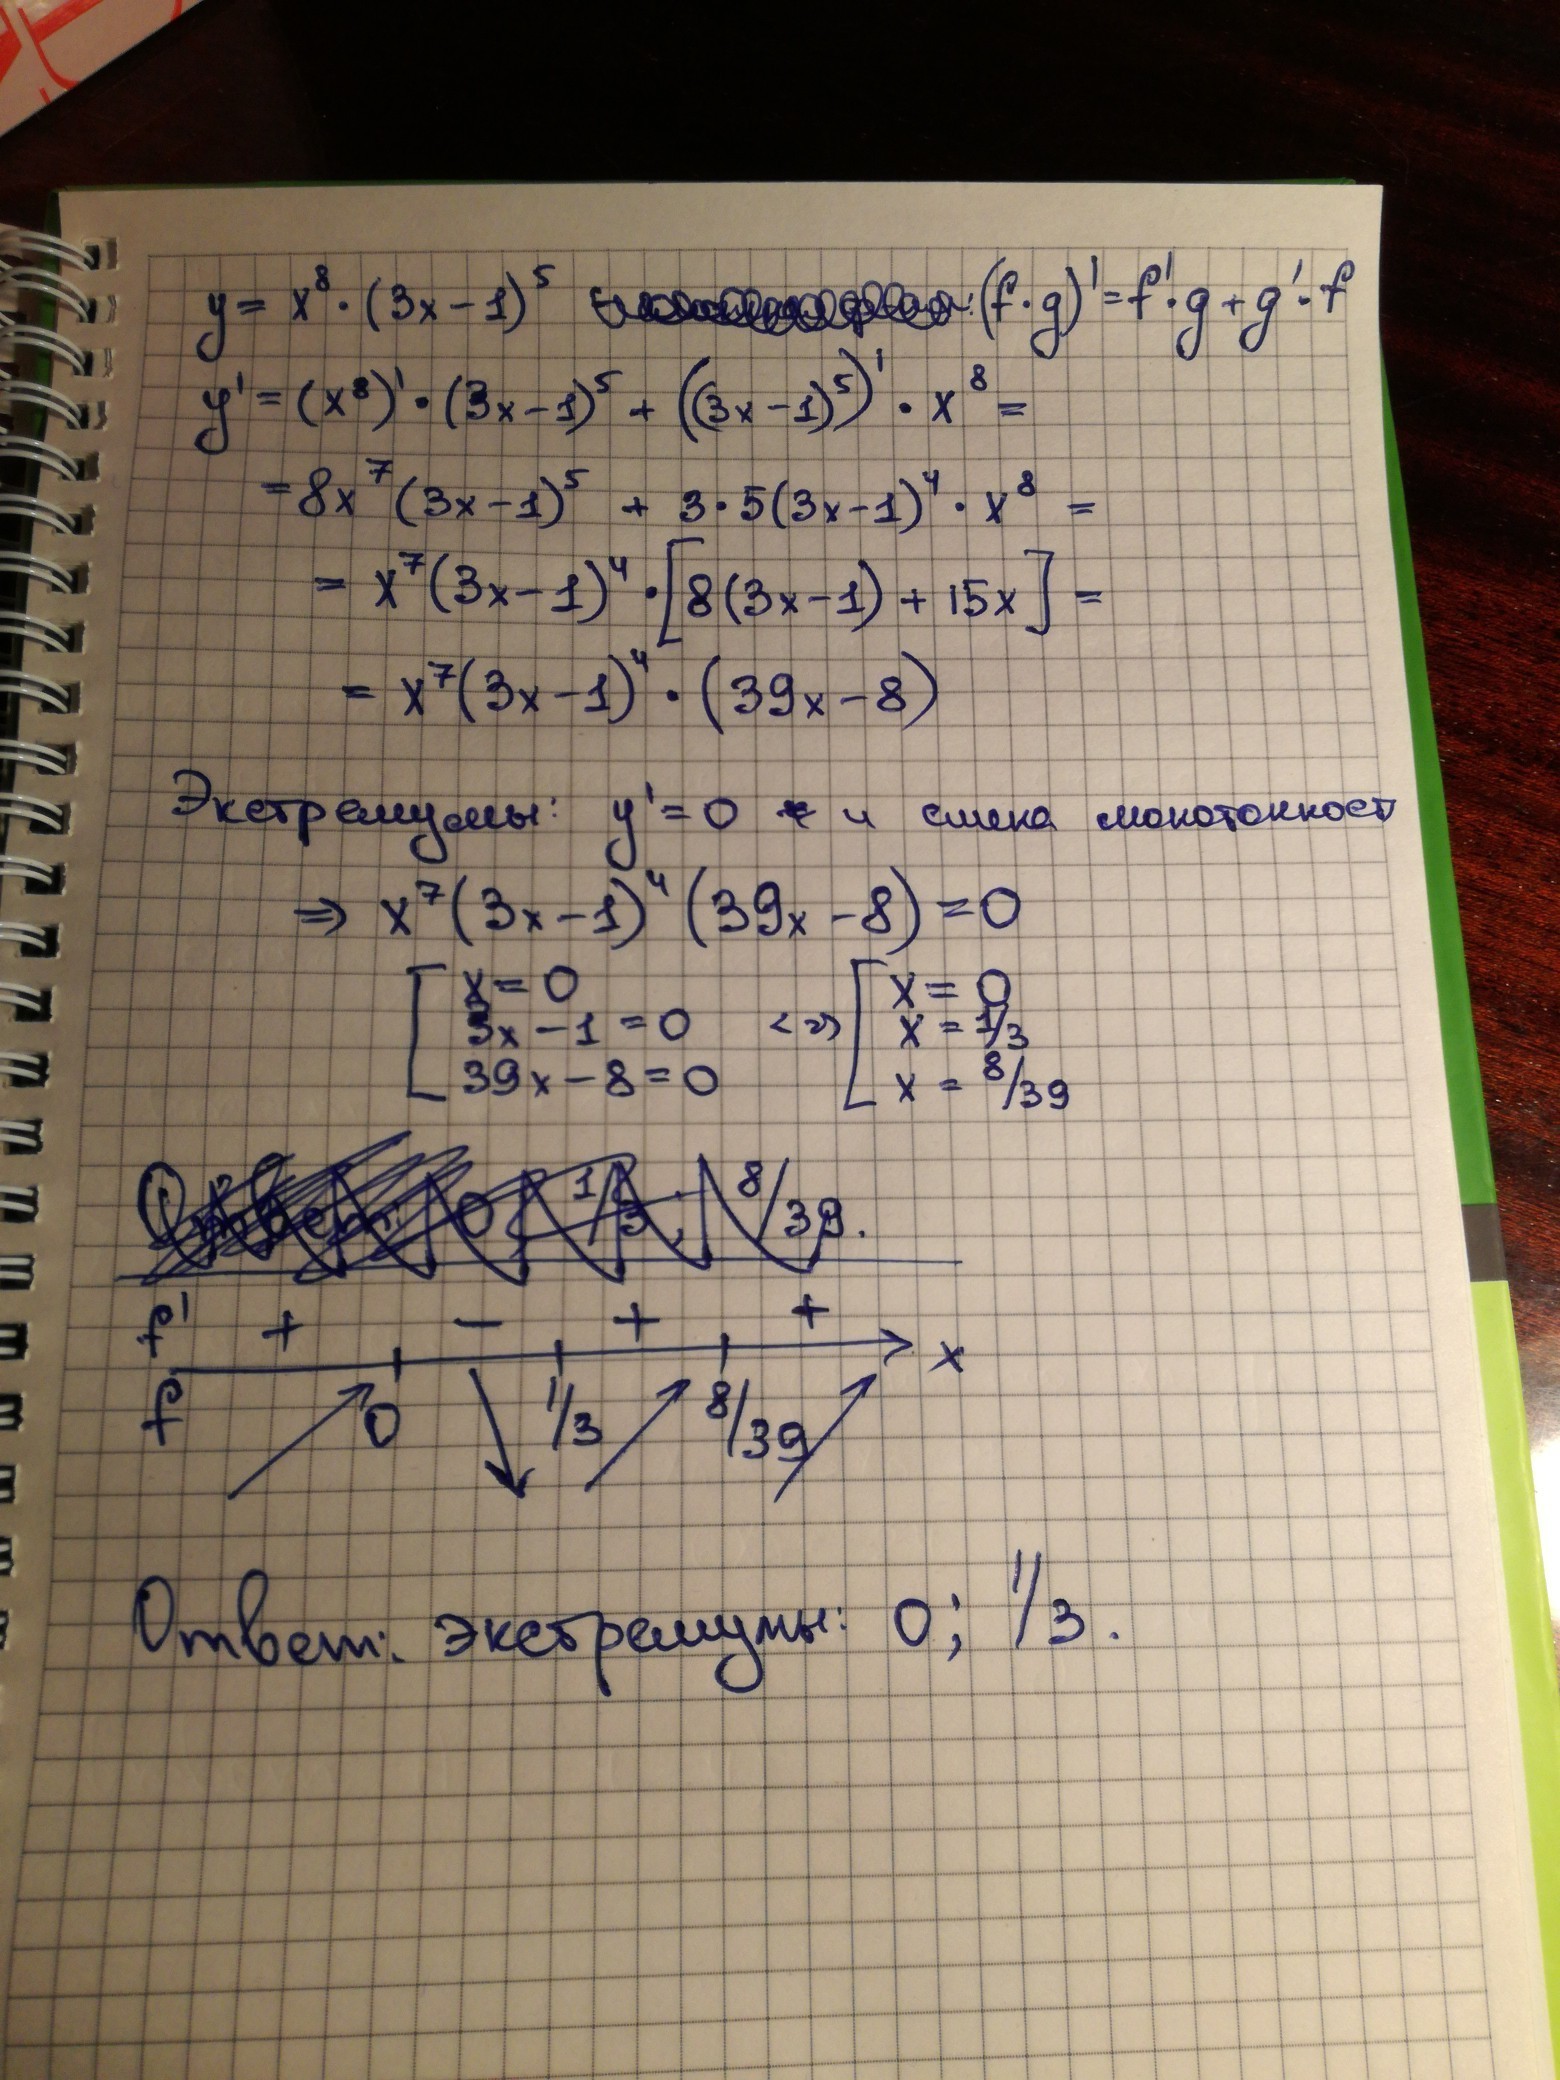 y = x⁸ · (3x − 1)⁵ (f · g)' = f' · g + g' · f
y' = (x⁸)' · (3x − 1)⁵ + ((3x − 1)⁵)' · x⁸ =
= 8x⁷(3x − 1)⁵ + 3 · 5(3x − 1)⁴ · x⁸ =
= x⁷(3x − 1)⁴ · [8(3x − 1) + 15x] =
= x⁷(3x − 1)⁴ · (39x − 8)
Экстремумы: y' = 0 и смена монотонност
⇒ x⁷(3x − 1)⁴(39x − 8) = 0
[ x = 0 <=> [ x = 0
3x − 1 = 0 x = 1/3
39x − 8 = 0 x = 8/39
Ответ: 0; 1/3; 8/39.
f' + − + +
x
f 0 1/3 8/39
Ответ: экстремумы: 0; 1/3.